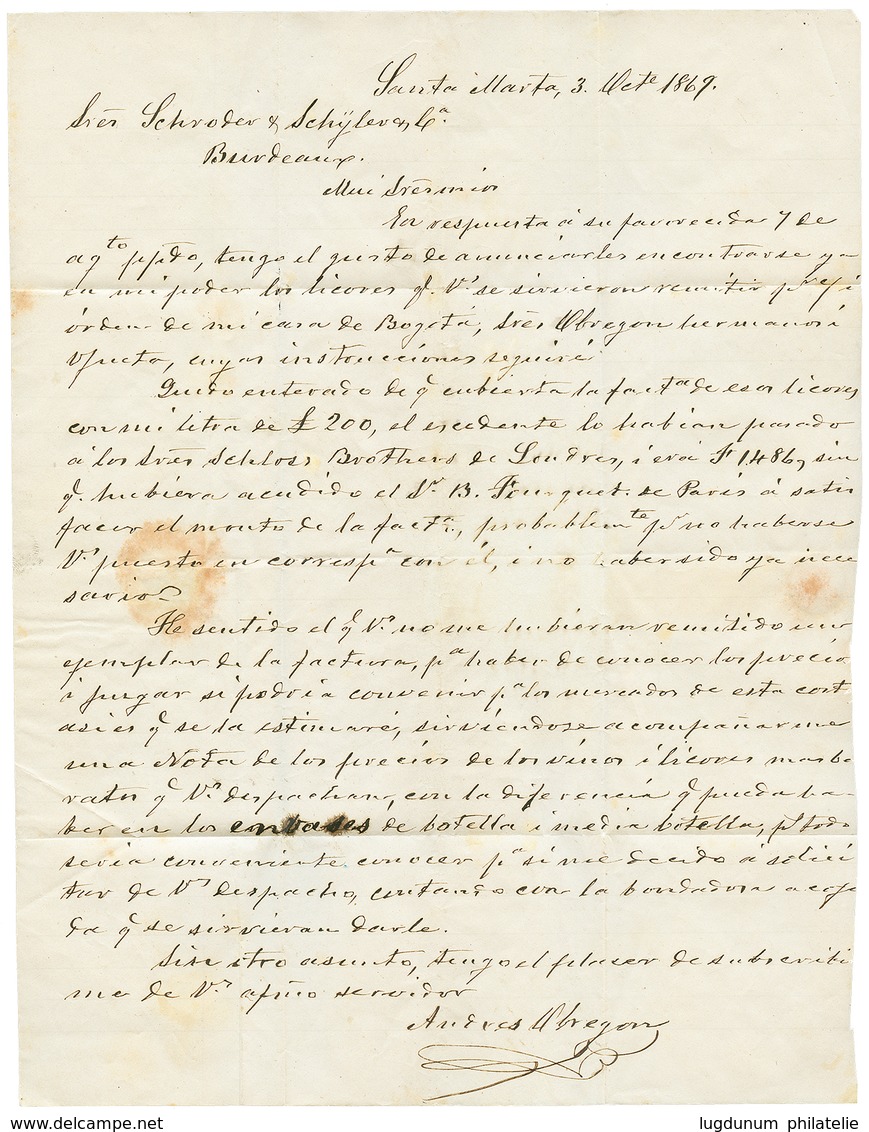 Santa Marta, 3. Octe 1869.
Srēs Schroder & Schÿler y Ca.
Burdeaux.
Mui Srēs mios
En respuesta á su favorecida 7 de
agto ppdo, tengo el gusto de anunciarles encontrarse ya
en mi poder los licores q̄. Vs se sirvieron remitir pr
órden de mi casa de Bogotá, Srēs Obregon hermanos i
cuyas instrucciones seguiré
Quedo enterado de q̄ cubierta la facta de esos licores
con mi letra de £ 200, el escedente lo habian pasado
á los Srēs Schloss Brothers de Londres, i era F 1.486, sin
q̄. hubiera acudido el Sr B. Fourquet. de Paris á satis
facer el monto de la facta., probablemte pr no haberse
Vs puesto en correspa con él, i no haber sido ya nece
sario
He sentido el q̄ Vs no me hubieran remitido un
ejemplar de la factura, pa haber de conocer los precio
i juzgar si podria convenir pa los mercados de esta cost
asi es q̄ se la estimaré, sirviéndose acompañarme
una Nota de los precios de los vinos i licores mas ba
ratos q̄ Vs despachan, con la diferencia q̄ pueda ha-
ber en los envases de botella i media botella, pr todo
seria conveniente conocer pa si me decido á solici
tar de Vs despacho, contando con la bondadosa acoji
da q̄ se sirvieran darle.
Sin otro asunto, tengo el placer de subscribi
me de Vs afmo servidor
Andres Obregon
delcampe.net
lugdunum philatelie